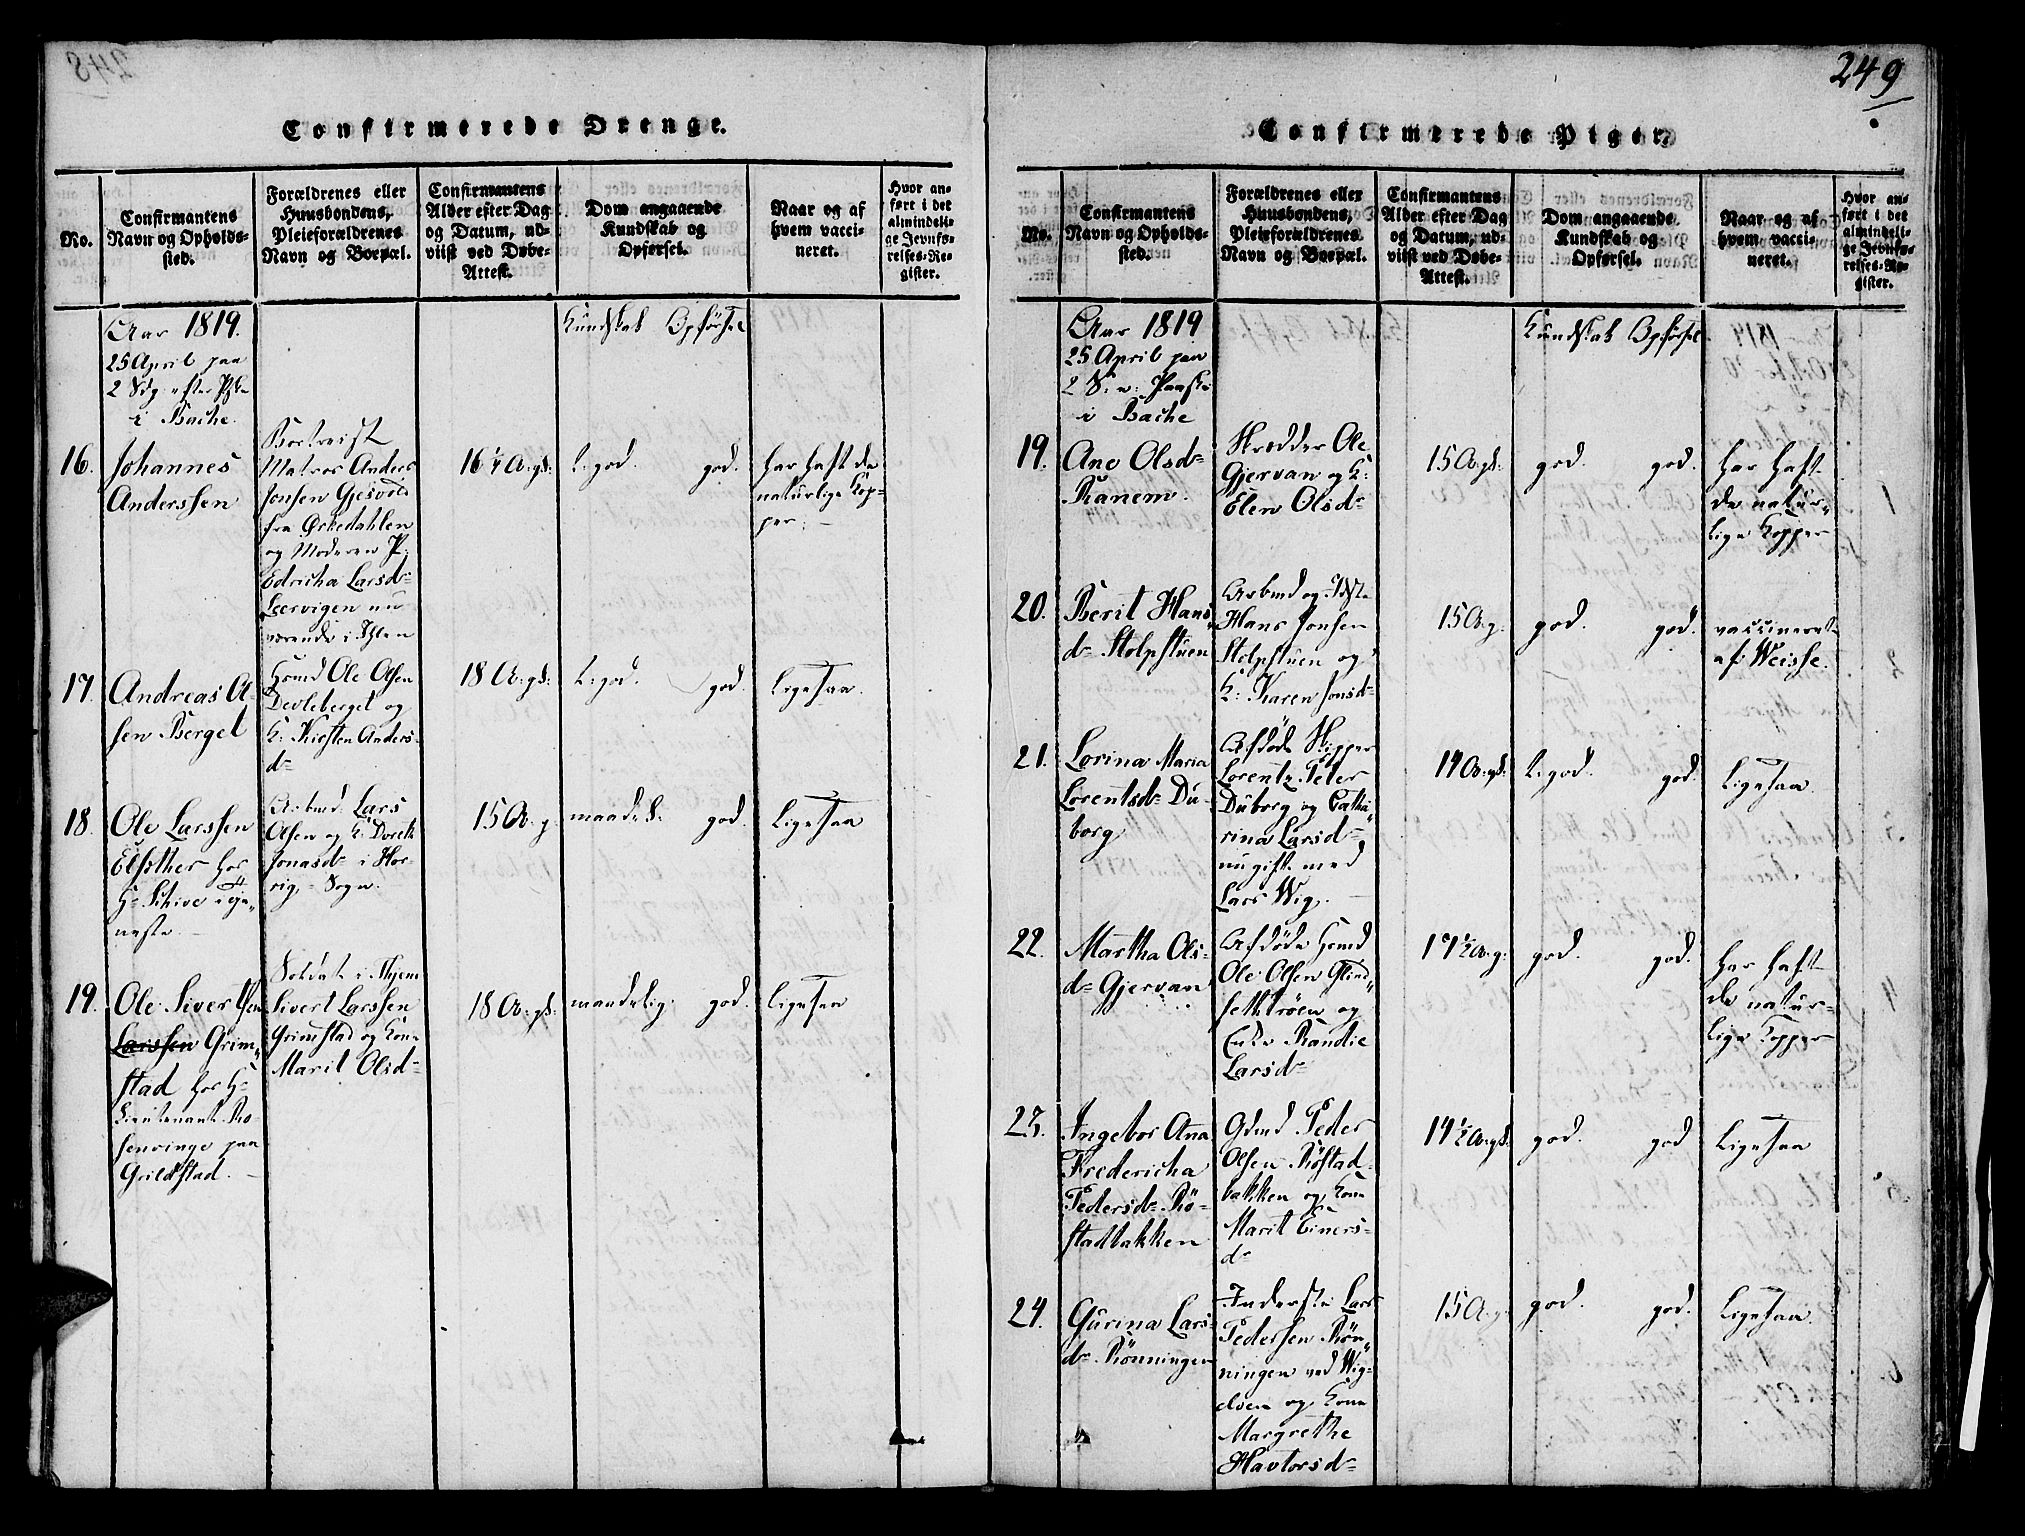 249
Confirmerede Drenge.
No.
Confirmantens
Navn og Opholds-
sted.
Forældrenes eller
Huusbondens,
Pleieforældrenes
Navn og Boepæl.
Confirmantens
Alder efter Dag
og Datum, ud-
viist ved Døbe-
Attest.
Dom angaaende
Kundskab og
Opførsel.
Naar og af
hvem vacci-
neret.
Hvor an-
ført i det
almindeli-
ge Jevnfø-
relses-Re-
gister.
Aar 1819.
25 April paa
2 Sdg efter Pske
i Bache.
Kundskab Opførsel
16.
Johannes
Anderssen
Bortreist
Matros Anders
Jonsen Gjesvold
fra Ørkedahlen
og Moderen P:
Edricha Larsd=
Leervigen nu
værende i Ihlen
16 1/4 A: gl:
t: god. god.
har haft de
naturlige Kop-
per. –
17.
Andreas Ol-
sen Berget
Huusmd Ole Olsen
Devleberget og
K: Kirsten Anders-
d=
18 A: gl:
t: god. god.
Ligesaa.
18.
Ole Larssen
Elsother hos
Hr Schive i tje-
neste. –
Arbmd: Lars
Olsen og K: Doreth
Jonasd= i Hor-
rig, = Sogn.
15 A: g.
maadel: god.
Ligesaa
19.
Ole Sivertsen
Larssen Grim-
stad hos Hr
Lieutenant Ro-
senvinge paa
Grildstad. –
Soldat i Hjem
Sivert Larssen
Grimstad og Kone
Marit Olsd=
18 A: gl:
maadelig. god.
Ligesaa
Confirmerede Piger.
No.
Confirmantens
Navn og Opholds-
sted.
Forældrenes eller
Huusbondens,
Pleieforældrenes
Navn og Boepæl.
Confirmantens
Alder efter Dag
og Datum, ud-
viist ved Døbe-
Attest.
Dom angaaende
Kundskab og
Opførsel.
Naar og af
hvem vacci-
neret.
Hvor an-
ført i det
almindeli-
ge Jevnfø-
relses-Re-
gister.
Aar 1819
25 April paa
2 S. e: Paaske
i Bache
Kundskab Opførsel
19.
Ane Olsd=
Ranem.
Skrædder Ole
Gjervan og K:
Elen Olsd=
15 A: gl:
god. god.
har haft
de natur-
lige Kopper
20.
Berit Hans-
d= Stolpstuen
Arbmd og Indste
Hans Jonsen
Stolpstuen og
K: Karen Jonsd=
15 A: g.
god. god.
vaccineret
af Weisse.
21.
Lorina Maria
Lorentsd= Du-
borg
Afdøde Skipper
Lorentz Peter
Duborg og Catha-
rina Larsd=
nu gift med
Lars Wig. –
14 A: gl:
t: god. god.
Ligesaa.
22.
Martha Ols-
d= Gjervan
Afdøde Huusmd
Ole Olsen Glind-
setttrøen og
Enke Randie
Larsd=
17 1/2 A: g:
god. god.
har haft
de natur-
lige Kopper
23.
Ingebor Ana
Fredericha
Pedersd= Rø-
stadbakken
Gdmd Peder
Olsen Røstad-
bakken og Kone
Marit Einers-
d=
14 1/2 A: gl:
god. god
Ligesaa
24.
Gurina Lars-
d= Rønningen
Inderste Lars
Pedersen Røn-
ningen ved Wig-
elven og Kone
Margrethe
Havtorsd=
15 A: g.
god. god.
Ligesaa.